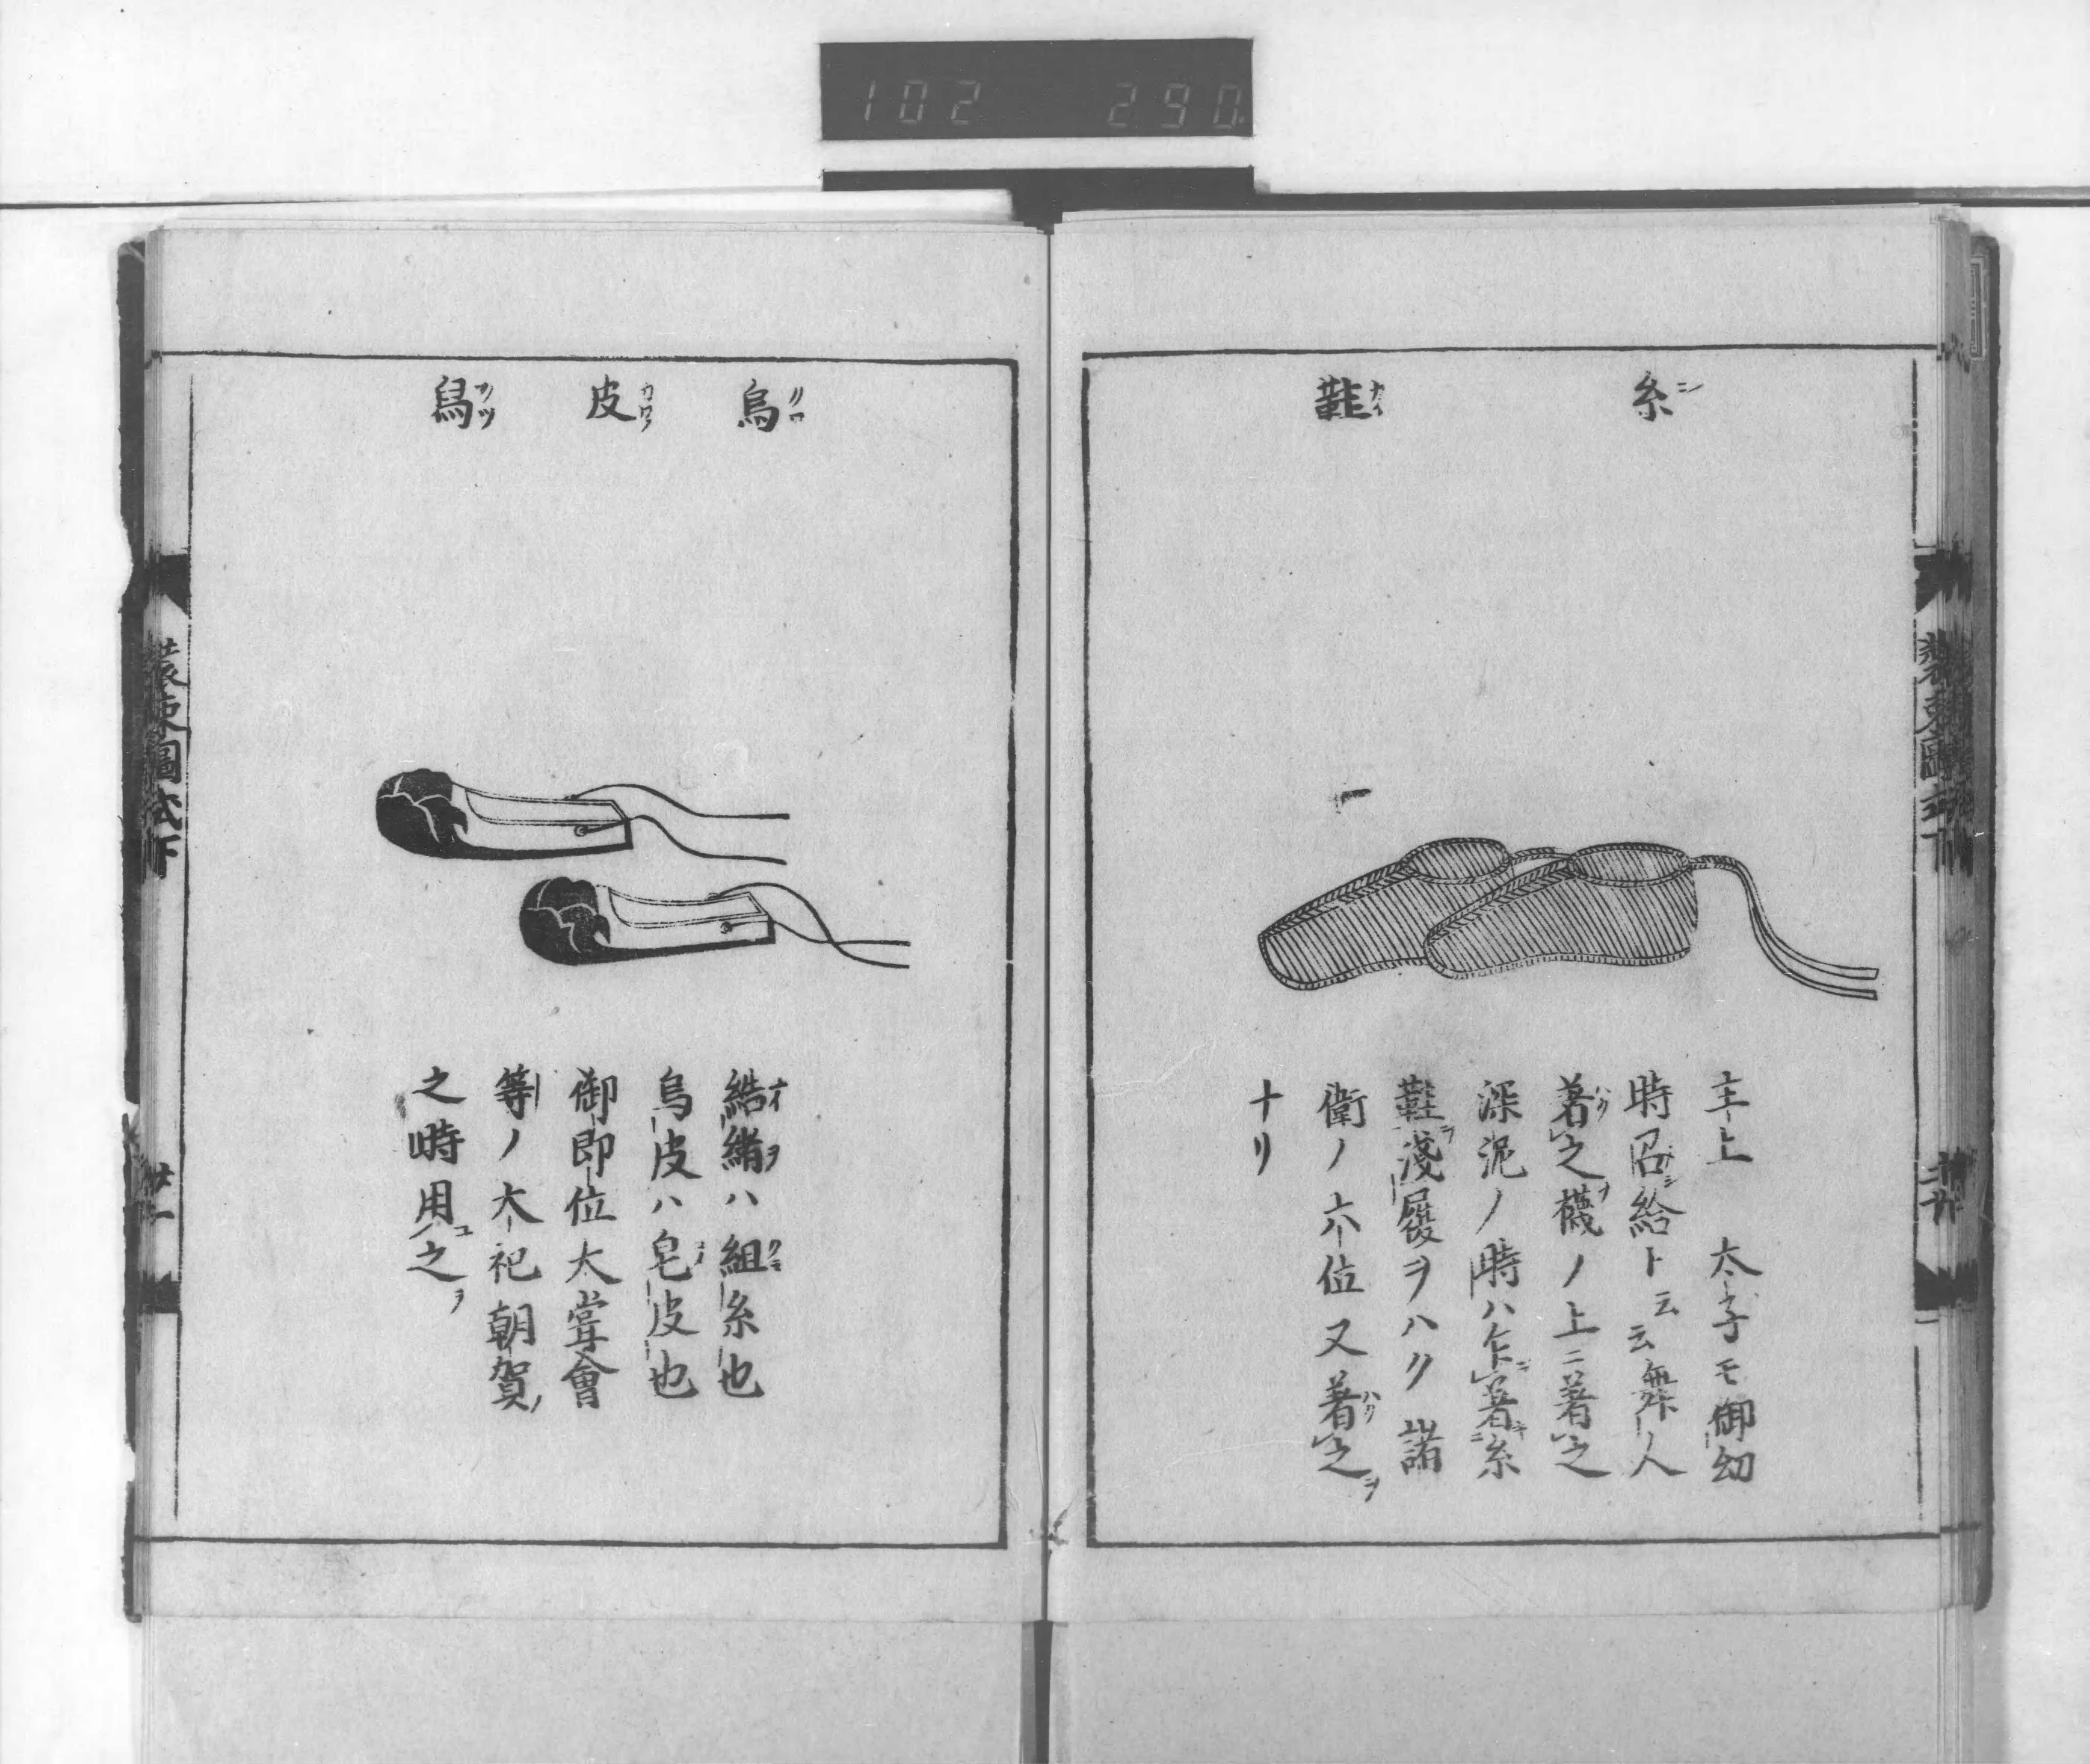 102 290
糸鞋
主上 太子モ御幼
時召給ト云云舞人
著之襪ノ上ニ著之
深泥ノ時ハ乍著糸
鞋淺履ヲハク諸
衛ノ六位又著之
ナリ
烏皮舄
緒ハ組糸也
烏皮ハ皂皮也
御即位大嘗會
等ノ大祀朝賀
之時用之
裝束圖式下